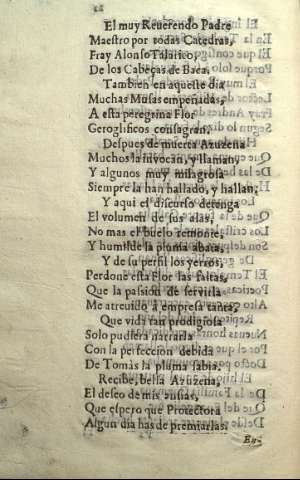 El muy Reuerendo Padre
Maestro por todas Catedras,
Fray Alonso Talarico,
De los Cabeças de Baea.
Tambien en aqueste dia
Muchas Musas empeñadas,
A esta peregrina Flor
Geroglificos consagran.
Despues de muerta Azuzena
Muchos la invocan, y llaman,
Y algunos muy milagrosa
Siempre la han hallado, y hallan,
Y aqui el discurso detenga
El volumen de sus alas,
No mas el buelo remonte,
Y humilde la pluma abata,
Y de su perfil los yerros,
Perdone esta Flor las faltas,
Que la passion de servirla
Me atreuido à empresa tanta,
Que vida tan prodigiosa
Solo pudiera narrarla
Con la perfeccion debida
De Tomàs la pluma sabia.
Recibe, bella Azuzena,
El deseo de mis ansias,
Que espero que Protectora
Algun dia has de premiarlas.